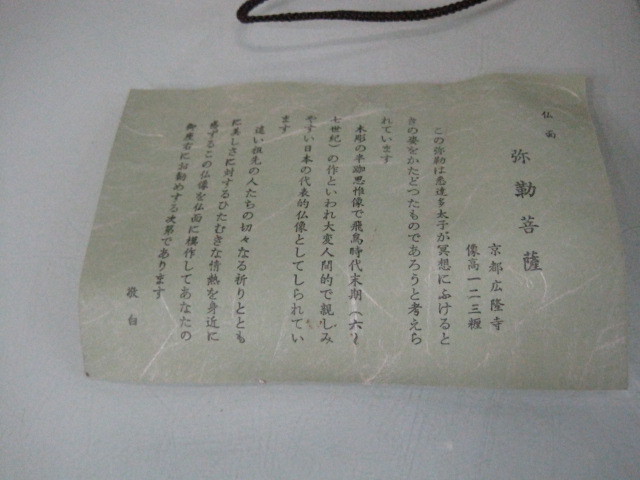 仏面
弥勒菩薩
京都広隆寺
像高一二三糎
この弥勒は悉達多太子が冥想にふけると
きの姿をかたどつたものであろうと考えら
れています
木彫の半跏思惟像で飛鳥時代末期(六〜
七世紀)の作といわれ大変人間的で親しみ
やすい日本の代表的仏像としてしられてい
ます
遠い祖先の人たちの切々なる祈りととも
に美しさに対するひたむきな情熱を身近に
感ずるこの仏像を仏面に模作してあなたの
御座右にお勧めする次第であります
敬白